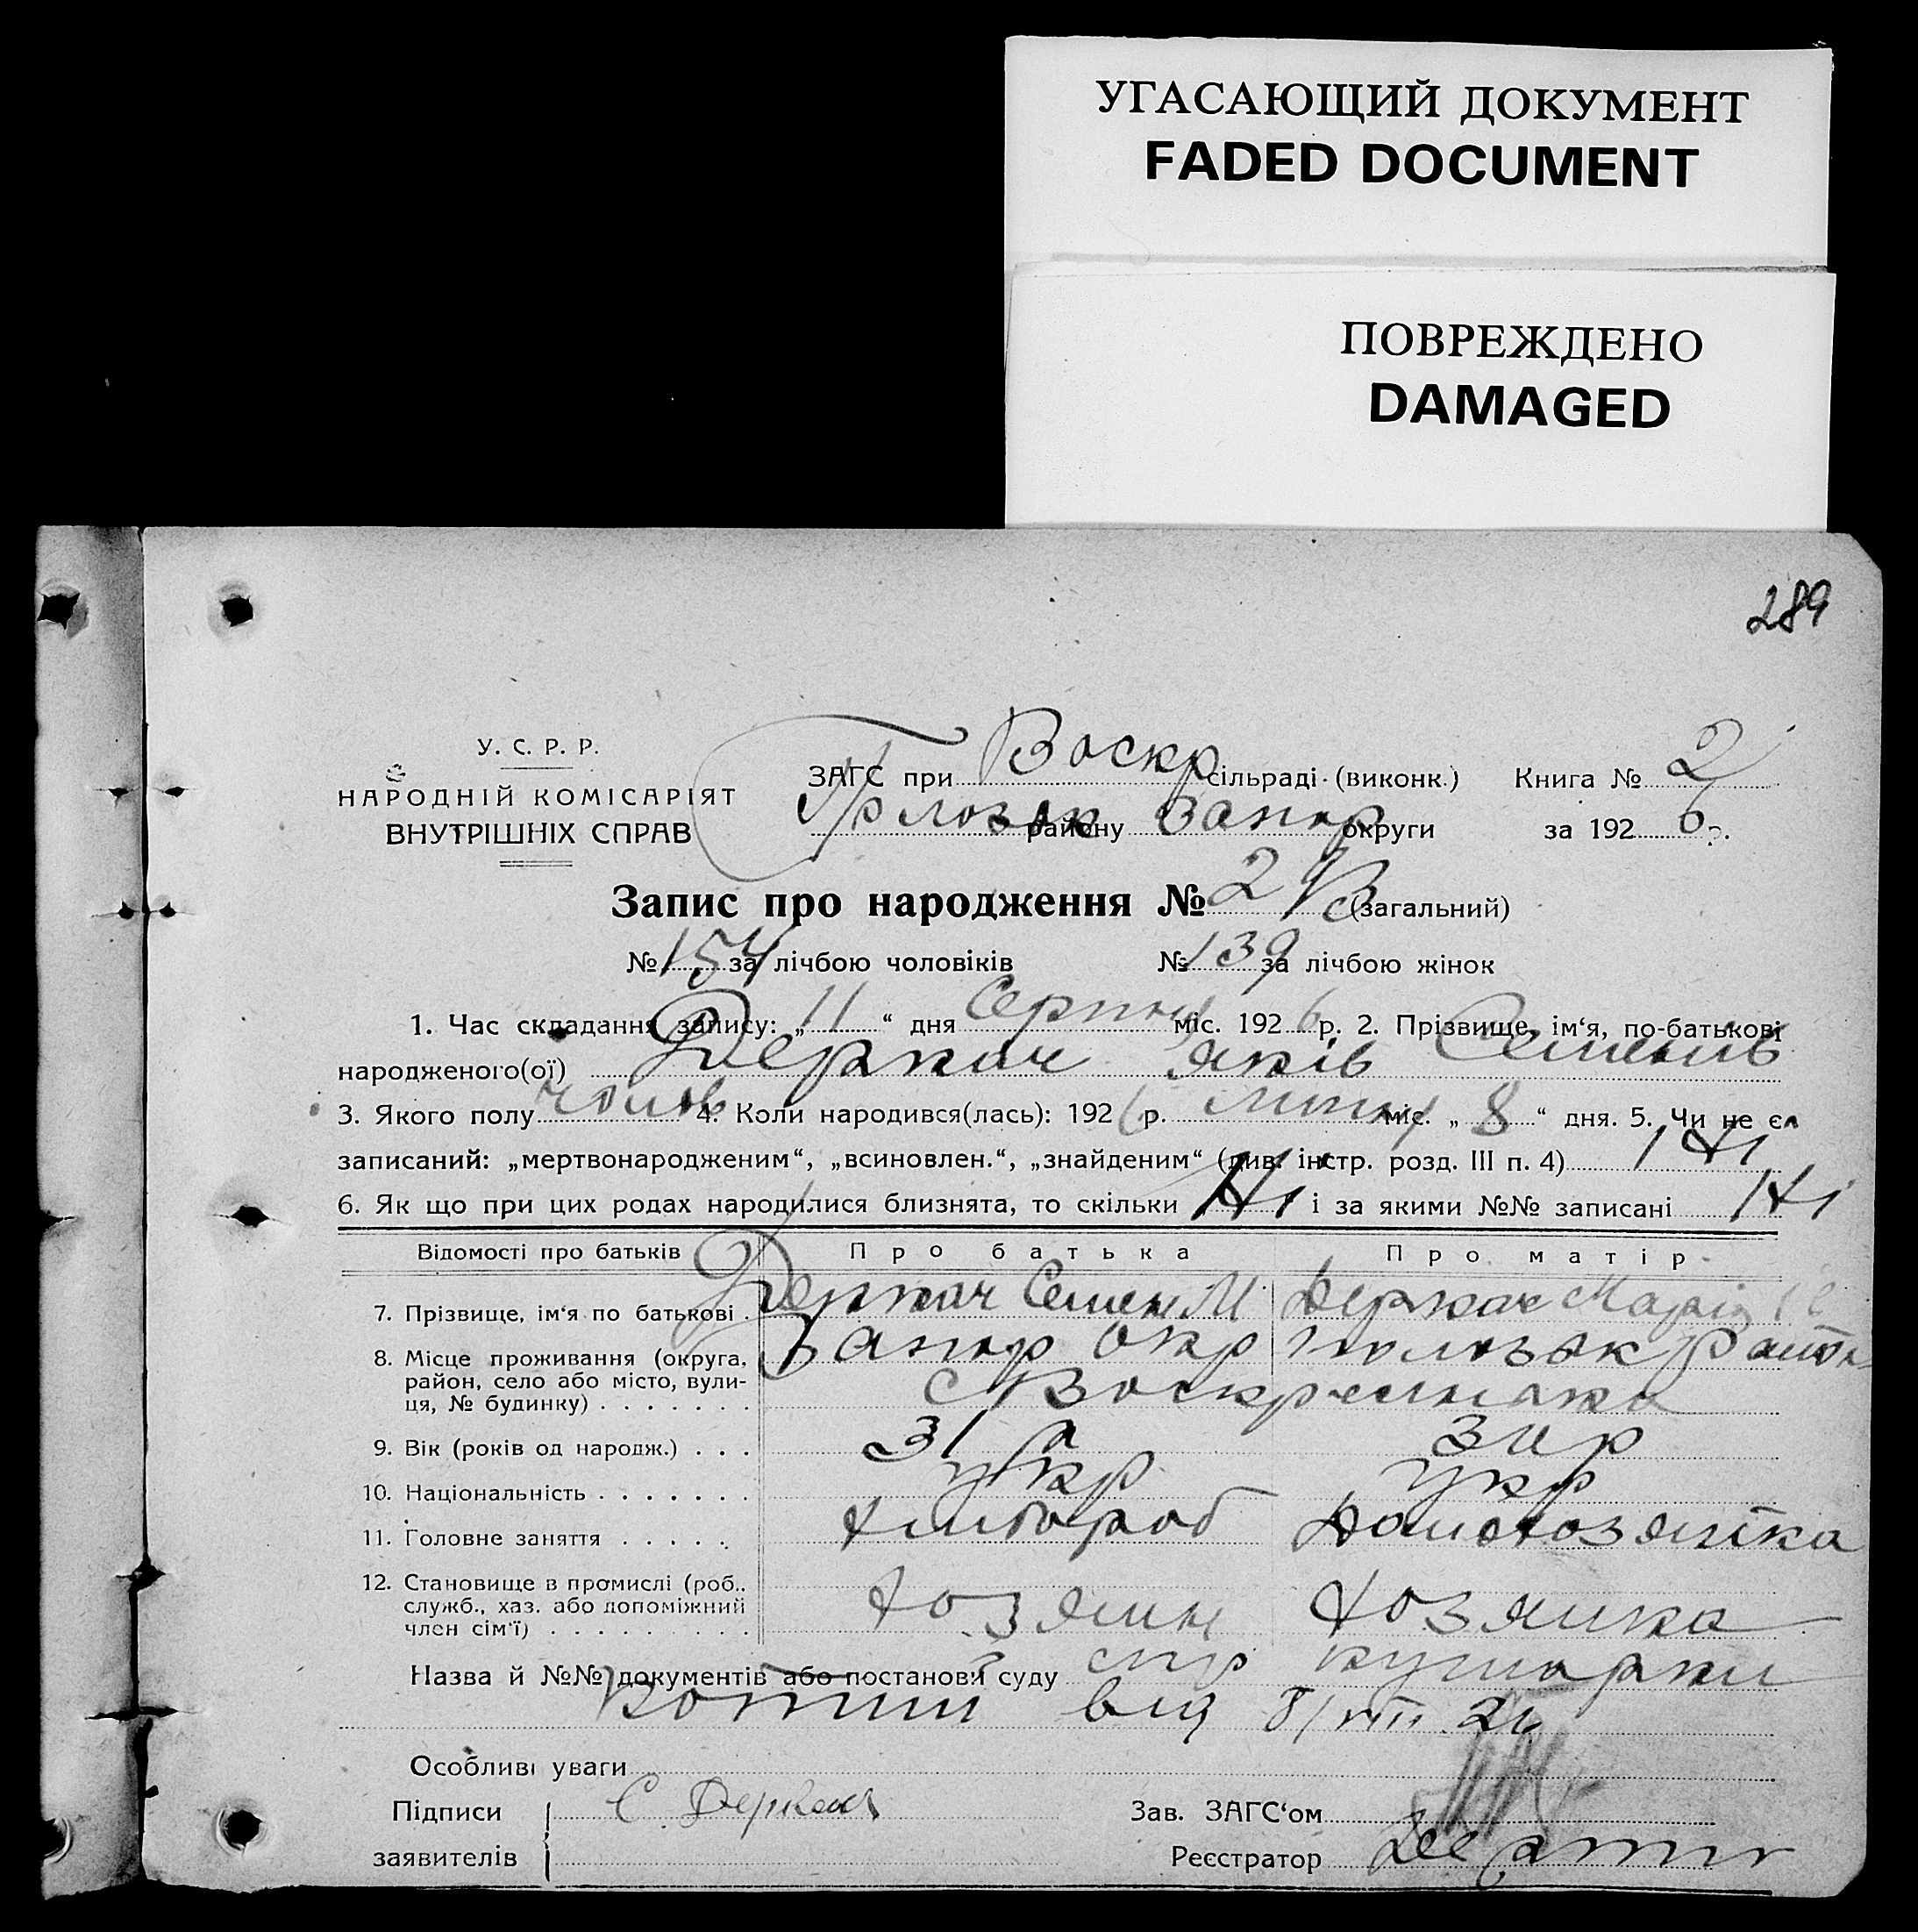 УГАСАЮЩИЙ ДОКУМЕНТ
FADED DOCUMENT
ПОВРЕЖДЕНО
DAMAGED
289
У. С. Р. Р.
НАРОДНІЙ КОМІСАРІЯТ
ВНУТРІШНІХ СПРАВ
ЗАГС при Воскр сільраді (виконк.) Книга № 2
району Запор округи за 1926 р.
Запис про народження № (загальний)
№ 154 за лічбою чоловіків № 139 за лічбою жінок
1. Час складання запису: „ 11 “ дня Серпня міс. 1926 р. 2. Прізвище, ім‘я, по-батькові
народженого(ої) Деркач Яків Семенів
3. Якого полу чолов 4. Коли народився(лась): 1926 р. міс. „ 8 “ дня. 5. Чи не є
записаний: „мертвонародженим“, „всиновлен.“, „знайденим“ (див. інстр. розд. III п. 4) Ні
6. Як що при цих родах народилися близнята, то скільки Ні і за якими №№ записані Ні
Відомості про батьків Про батька Про матір
7. Прізвище, ім‘я по батькові Деркач Семен М Деркач Марія
8. Місце проживання (округа, район, село або місто, вулиця, № будинку) Запор окр Полозьк
с Воскресенка
9. Вік (років од народж.) 31 р
10. Національність укр укр
11. Головне заняття хлібороб домохозяйка
12. Становище в промислі (роб., служб., хаз. або допоміжний член сім‘ї) хозяин хозяйка
Назва й №№ документів або постанови суду
від 8/VIII 26
Особливі уваги
Підписи С. Деркач Зав. ЗАГС‘ом
заявителів Реєстратор